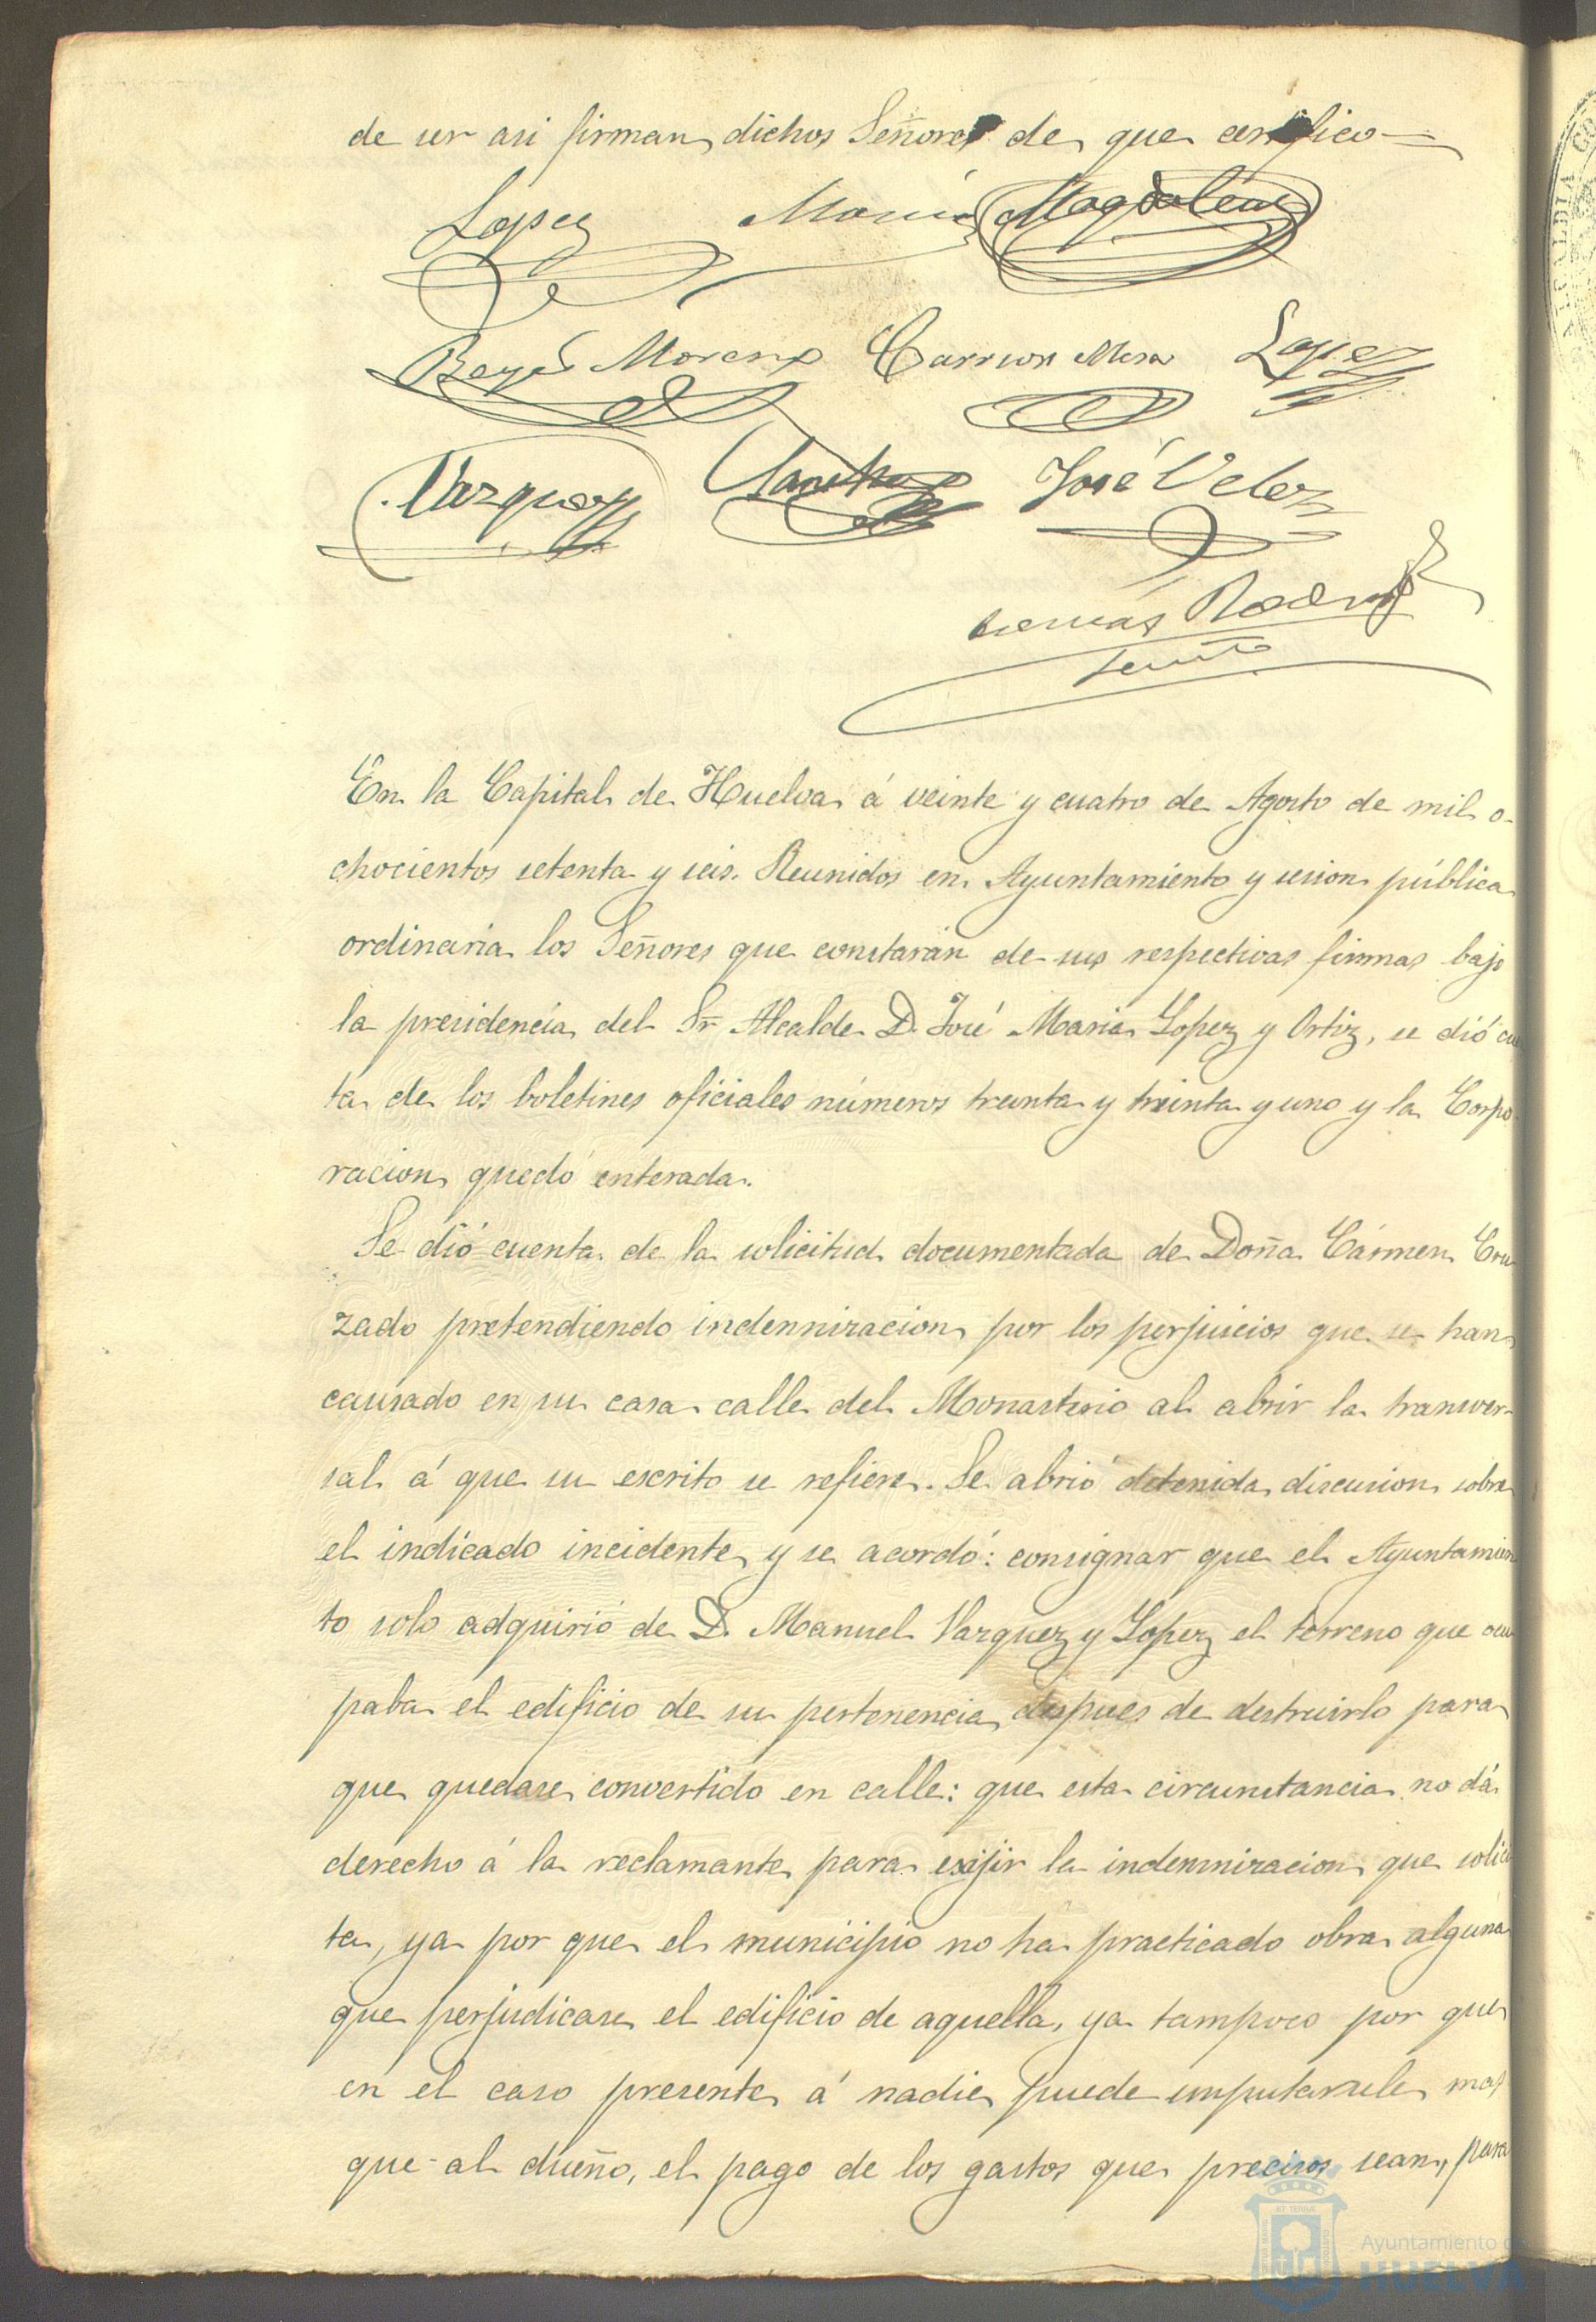 de ser asi firman dichos Señores de que certifico
Lopez Magdalena
Reyes Moreno Carrion Mesa Lopez
Vazquez Sanchez José Velez
En la Capital de Huelva á veinte y cuatro de Agosto de mil o-
chocientos setenta y seis. Reunidos en Ayuntamiento y sesion pública
ordinaria los Señores que constarán de sus respectivas firmas bajo
la presidencia del Sr Alcalde D. José Maria Lopez y Ortiz, se dió cu
ta de los boletines oficiales números treinta y treinta y uno y la Corpo-
racion quedó enterada.
Se dió cuenta de la solicitud documentada de Doña Cármen Cru
zado pretendiendo indemnizacion por los perjuicios que se han
causado en su casa calle del Monasterio al abrir la transver-
sal á que su escrito se refiere. Se abrió detenida discusion sobre
el indicado incidente y se acordó: consignar que el Ayuntamien
to solo adquirió de D. Manuel Vazquez y Lopez el terreno que ocu
paba el edificio de su pertenencia despues de destruirlo para
que quedase convertido en calle: que esta circunstancia no dá
derecho á la reclamante para esijir la indemnizacion que solici
ta, ya por que el municipio no ha practicado obra alguna
que perjudicase el edificio de aquella, ya tampoco por que
en el caso presente á nadie puede imputarsele mas
que al dueño, el pago de los gastos que precisos sean, para
Ayuntamiento de
HUELVA